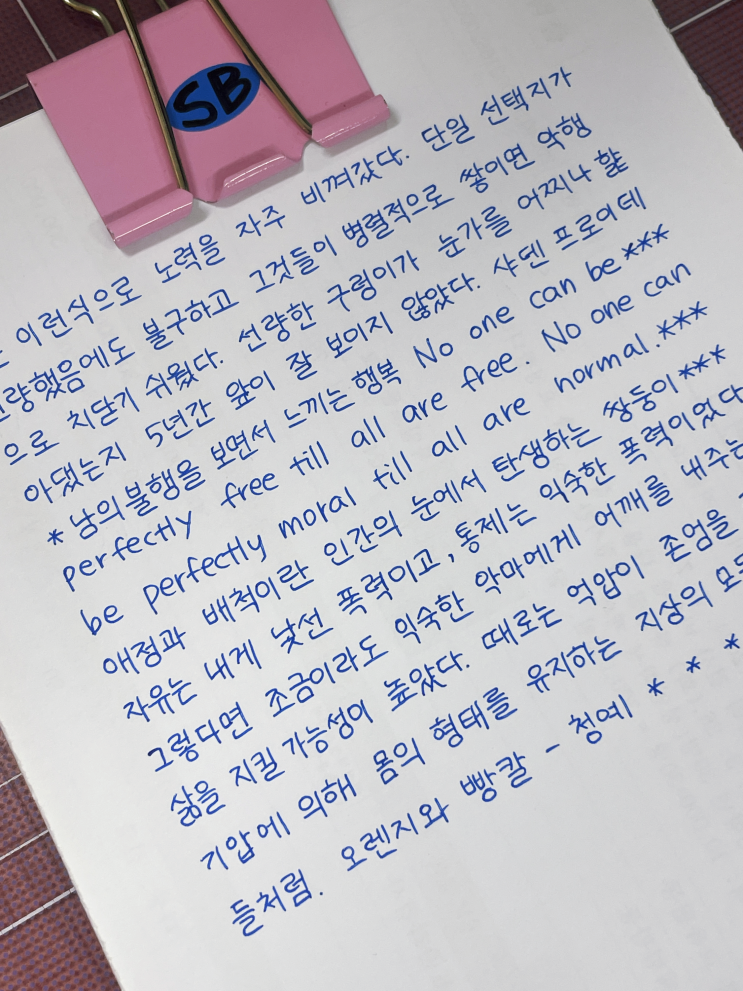 SB
이런식으로 노력을 자주 비껴갔다. 단일 선택지가
선량했음에도 불구하고 그것들이 병렬적으로 쌓이면 악행
으로 치닫기 쉬웠다. 선량한 구렁이가 눈가를 어찌나 핥
아댔는지 5년간 앞이 잘 보이지 않았다. 샤덴 프로이데
* 남의불행을 보면서 느끼는 행복 No one can be ***
perfectly free till all are free. No one can
be perfectly moral till all are normal. ***
애정과 배척이란 인간의 눈에서 탄생하는 쌍둥이 ***
자유는 내게 낯선 폭력이고, 통제는 익숙한 폭력이었다
그렇다면 조금이라도 익숙한 악마에게 어깨를 내주는
삶을 지킬 가능성이 높았다. 때로는 억압이 존엄을
기압에 의해 몸의 형태를 유지하는 지상의 모든
들처럼. 오렌지와 빵칼 - 청예 * * *